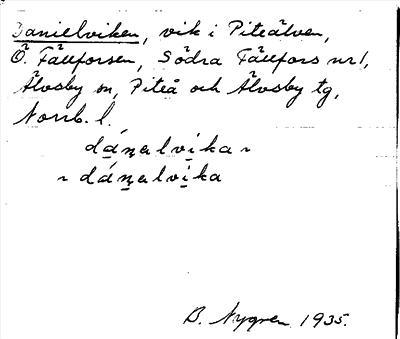 Danielviken, vik i Piteälven,
Ö. Fällforsen, Södra Fällfors nr 1,
Älvsby sn, Piteå och Älvsby tg,
Norrb. l.
dáṉalvi̱ka ~
~ dáṉalvi̱ka
B. Nygren 1935.